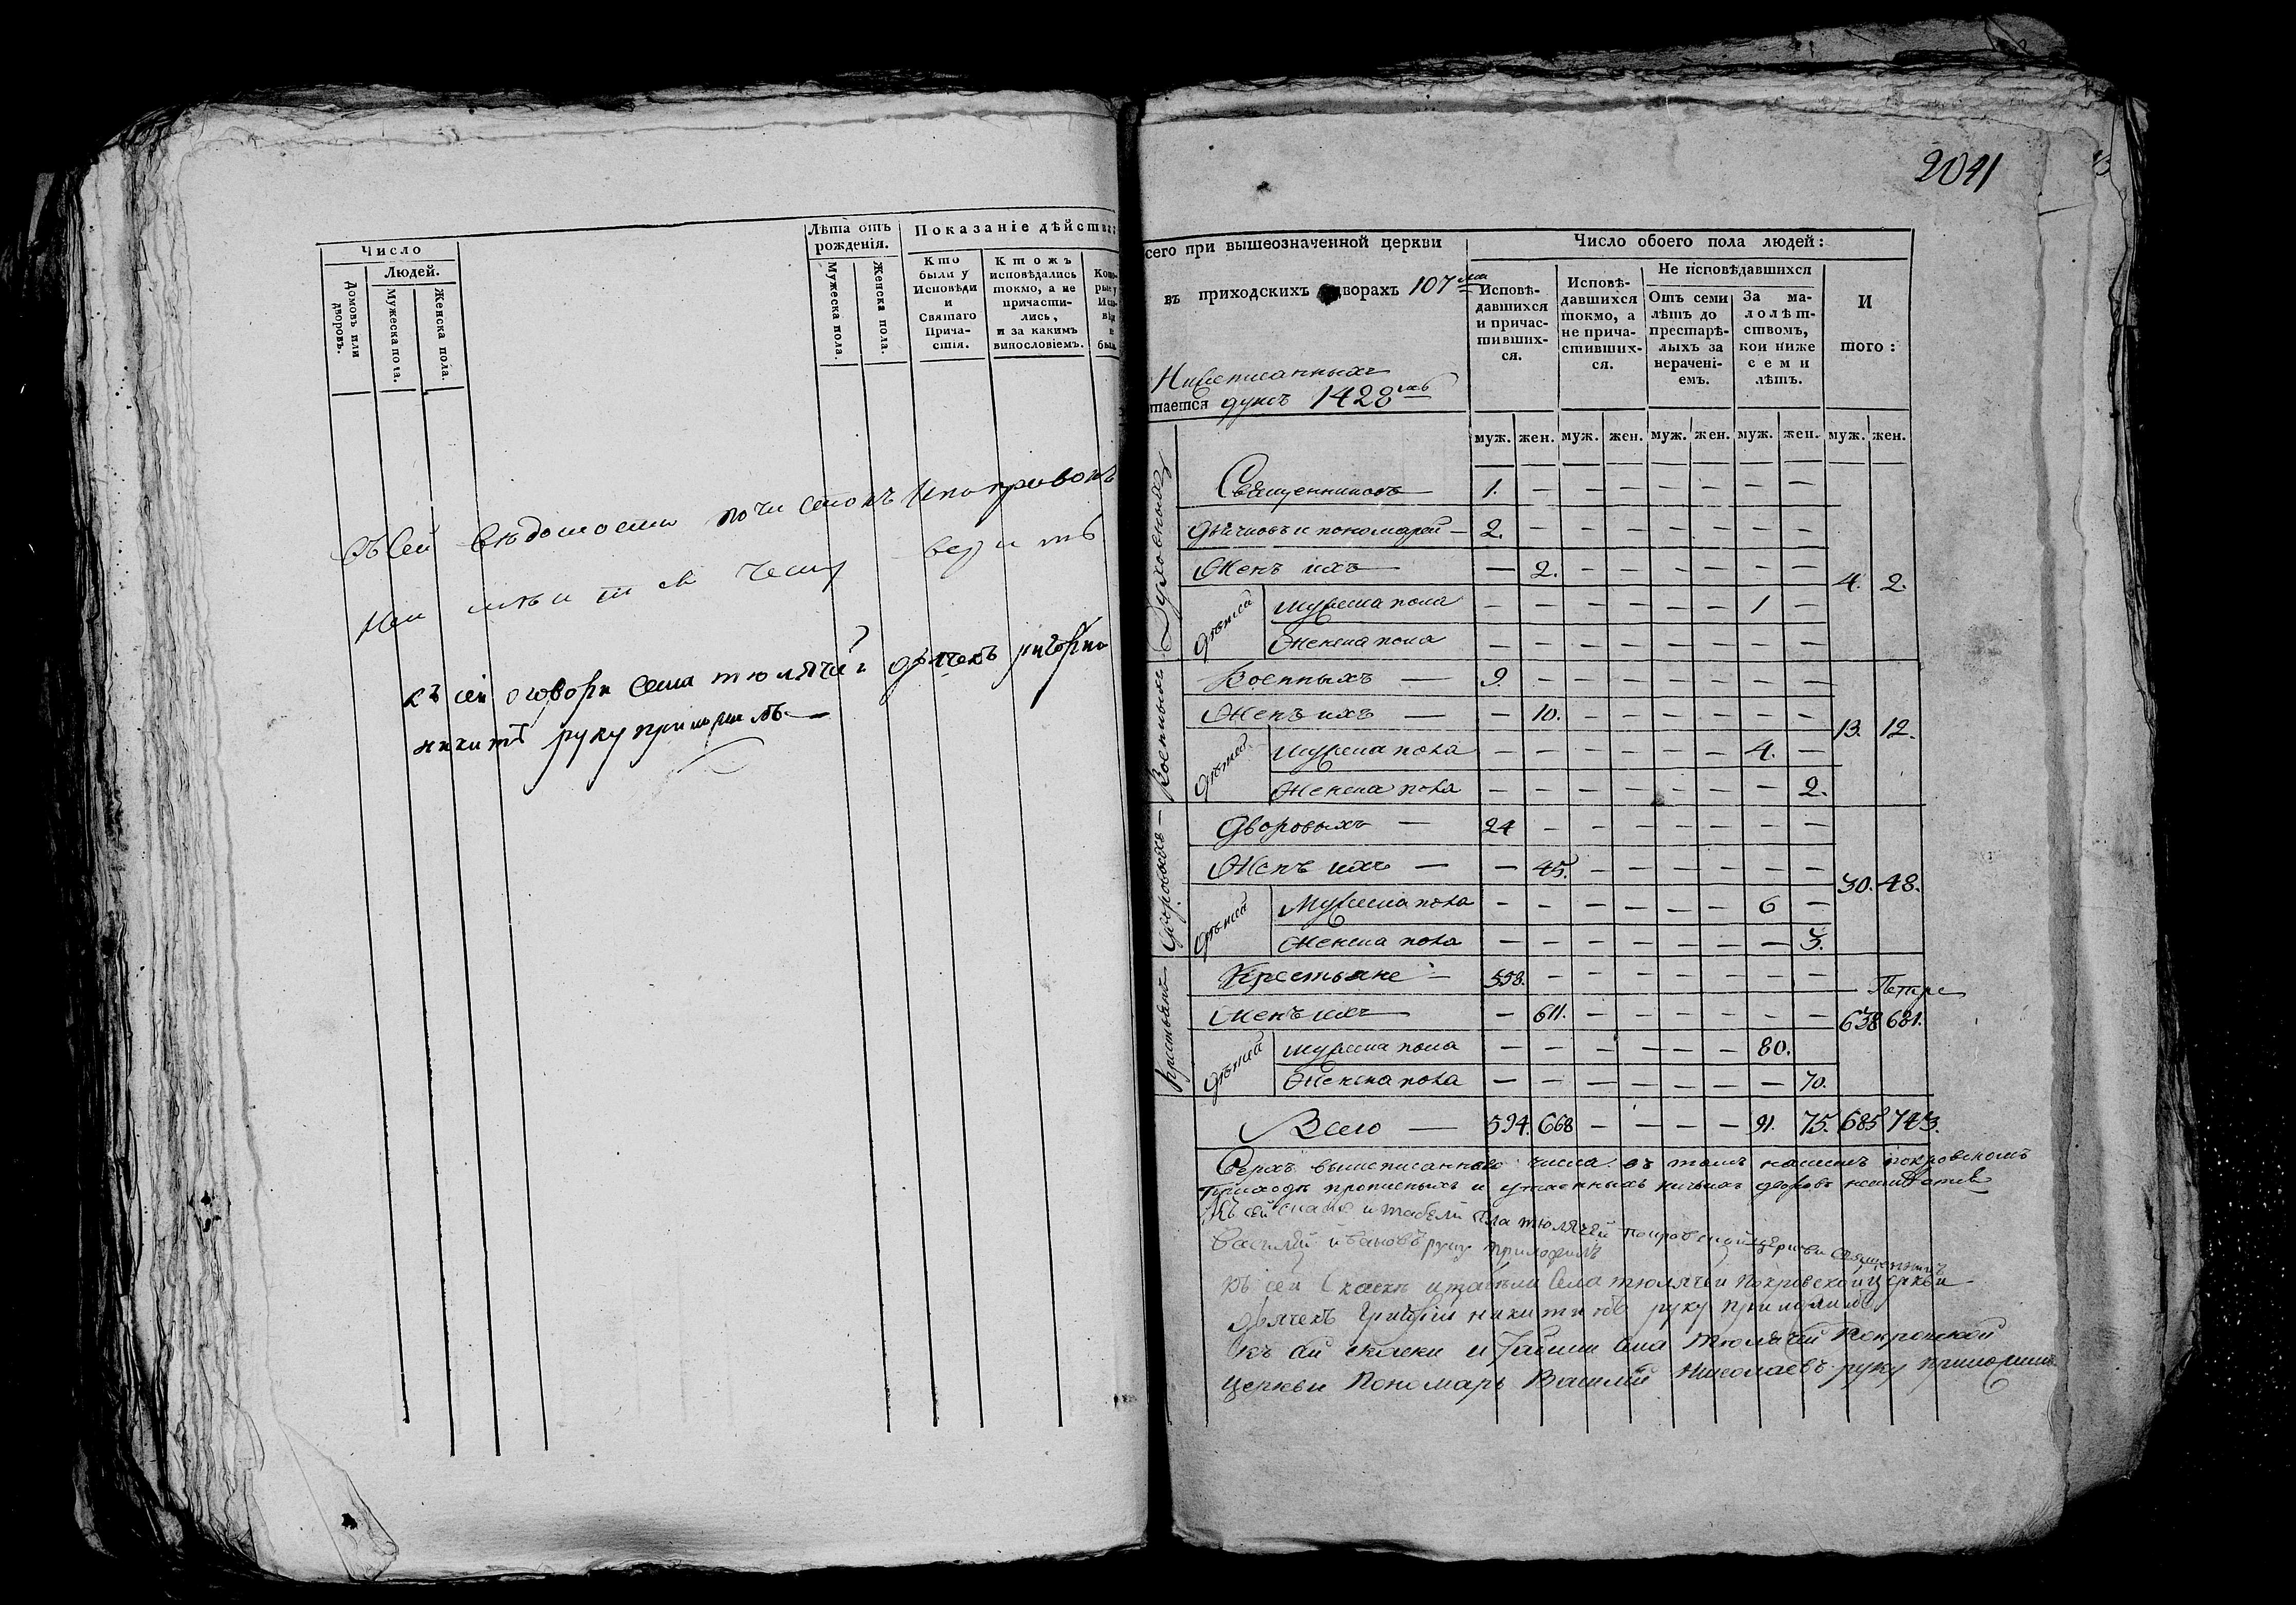 Число
Людей.
Домовъ или дворовъ.
Мужеска пола.
Женска пола.
Лѣта отъ рожденія.
Мужеска пола.
Женска пола.
Показаніе дѣйства
Кто были у Исповѣди и Святаго Прича- стія.
Ктожъ исповѣдались токмо, а не причасти- лись, и за какимъ винословіемъ.
Въ сей вѣдомости почисмокъ
вѣритъ
къ сей оговорки села тюлячей дьячекъ григорій
никитѣ руку приложилъ
2041
сего при вышеозначенной церкви
въ приходскихъ дворахъ 107
тается душъ 1428
Число обоего пола людей:
Исповѣ- давшихся и причас- тивших- ся.
Исповѣ- давшихся токмо, а не прича- стивших- ся.
Не исповѣдавшихся
Отъ семи лѣтъ до престарѣ- лыхъ за нерачені- емъ.
За ма- лолѣт- ствомъ, кои ниже семи лѣтъ.
И того:
муж. жен. муж. жен. муж. жен. муж. жен. муж. жен.
Духовныхъ
Священниковъ — 1. — — — — — — —
дьячковъ и пономарей — 2. — — — — — — —
Женъ ихъ — — 2. — — — — — — 4. 2.
Дѣтей
мужеска пола — — — — — — 1 —
Женска пола — — — — — — — —
Военныхъ
Военныхъ — 9. — — — — — — —
Женъ ихъ — — 10. — — — — — — 13. 12.
Дѣтей
мужеска пола — — — — — — 4. —
Женска пола — — — — — — — 2.
Дворовыхъ
Дворовыхъ — 24 — — — — — — —
Женъ ихъ — — 45. — — — — — — 30. 48.
Дѣтей
Мужеска пола — — — — — — 6 —
Женска пола — — — — — — — 3.
Крестьянъ
Крестьяне — 558. — — — — — — —
Женъ ихъ — 611. — — — — — — 638 681.
Дѣтей
мужеска пола — — — — — — 80.
Женска пола — — — — — — — 70.
Всего — 594. 668 — — — — 91. 75. 685 743.
Сверхъ вышеписаннаго числа въ томъ нашемъ покровскомъ
Приходѣ прописныхъ и утаенныхъ ничьихъ дворовъ
Къ сей скаске и табели села тюлячей покровской церкви священникъ
Василей ивановъ руку приложилъ
къ сей скаске и табели села тюлячей покровской церкви
дьячекъ григорій никитинъ руку приложилъ
къ сей скаски и табели села тюлячей Покровской
церкви Пономарь Василей Николаевъ руку приложилъ